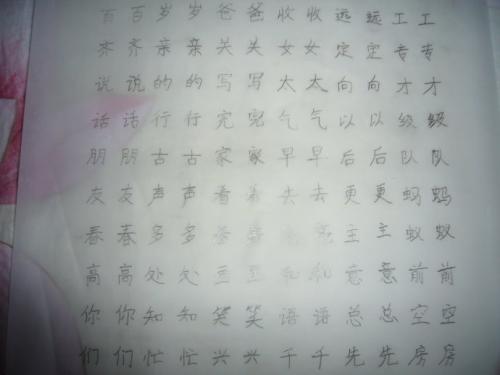 百百岁岁爸爸收收远远工工
齐齐亲亲关关女女定定专专
说说的的写写太太向向才才
话话行行完完气气以以级级
朋朋古古家家早早后后队队
友友声声看看去去更更蚂蚂
春春多多爷爷主主蚁蚁
高高处处和和意意前前
你你知知笑笑语语总总空空
们们忙忙兴兴千千先先房房